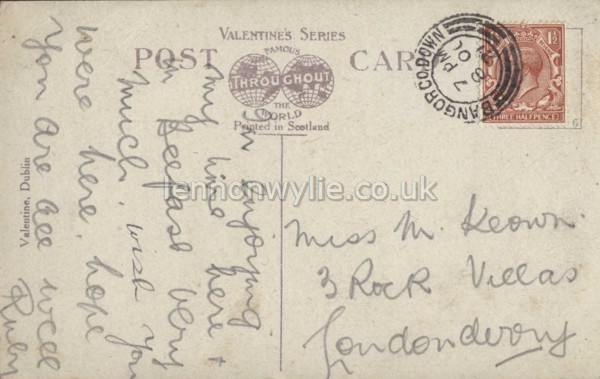 VALENTINE'S SERIES
POST CARD
FAMOUS
THROUGHOUT
THE
WORLD
Printed in Scotland
BANGOR CO. DOWN
7 PM
THREE HALFPENCE
Valentine, Dublin
lemonwylie.co.uk
Im enjoying
my time here +
in Belfast very
much, wish you
were here, hope
you are all well
Ruby
Miss M. Keown.
3 Rock Villas
Londonderry